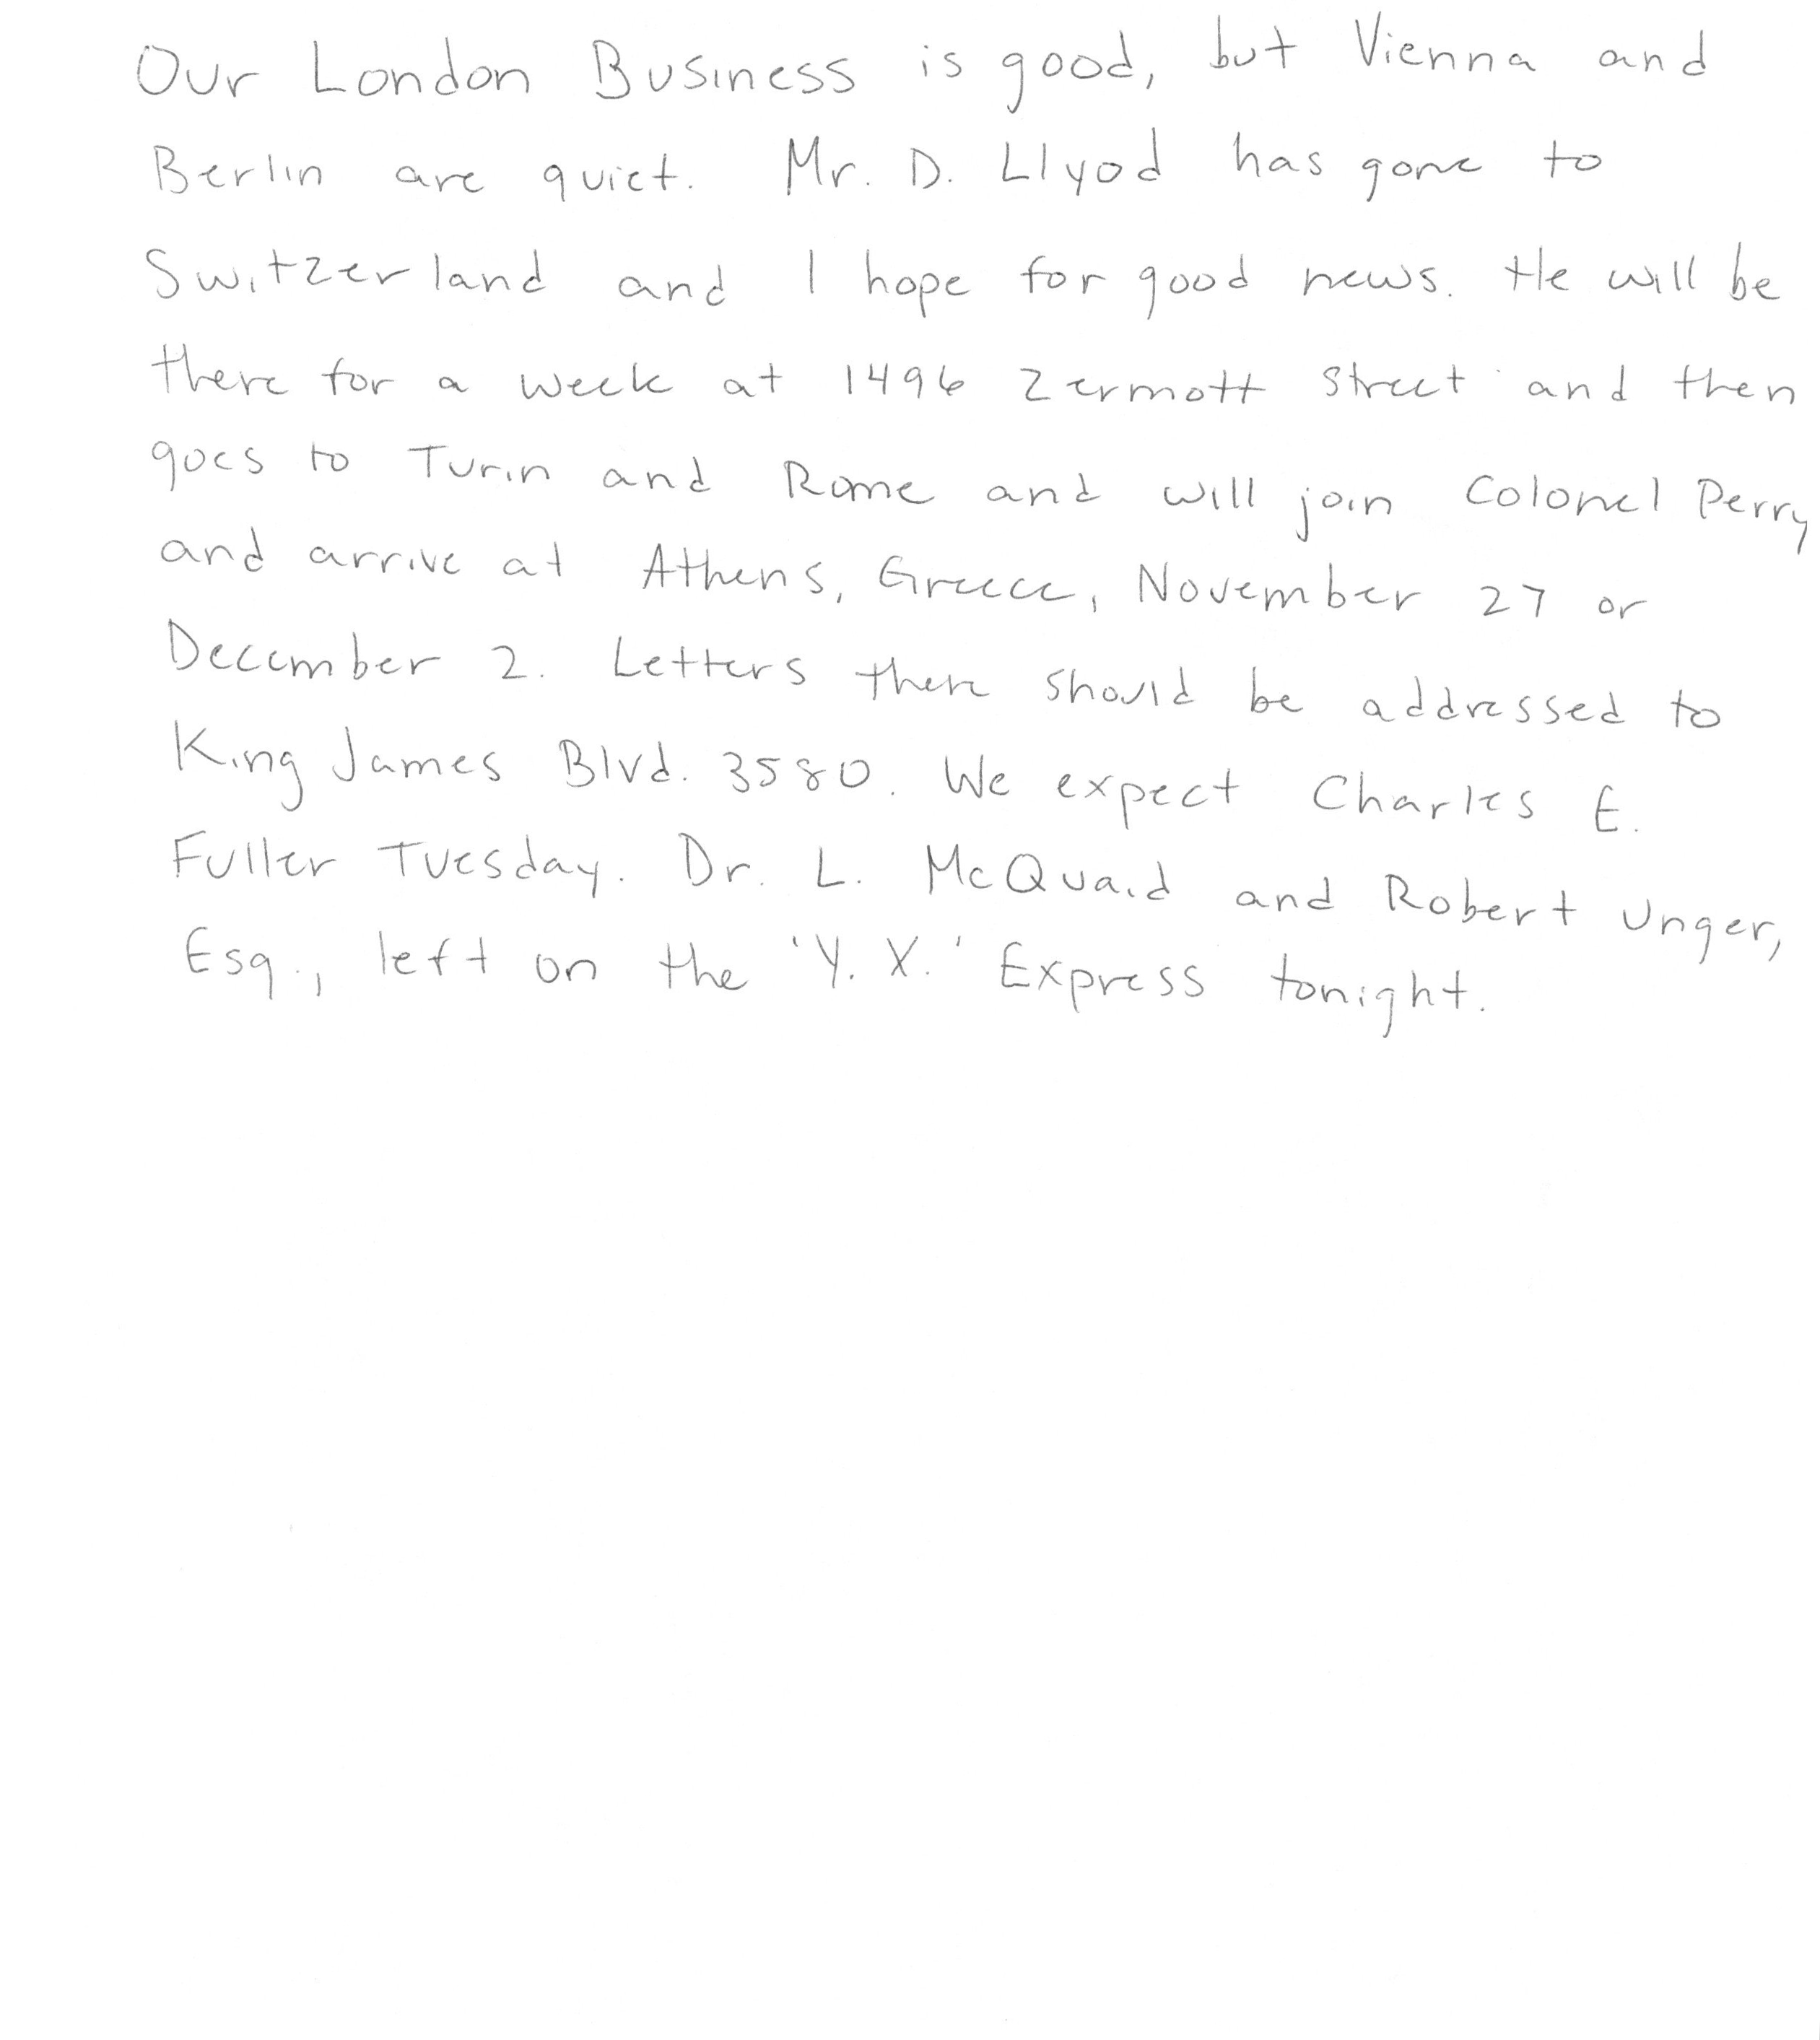 Our London Business is good, but Vienna and
Berlin are quiet. Mr. D. Llyod has gone to
Switzerland and I hope for good news. He will be
there for a week at 1496 Zermott street and then
goes to Turin and Rome and will join Colonel Perry
and arrive at Athens, Greece, November 27 or
December 2. Letters there should be addressed to
King James Blvd. 3580. We expect Charles E.
Fuller Tuesday. Dr. L. McQuaid and Robert Unger,
Esq., left on the 'Y. X.' Express tonight.